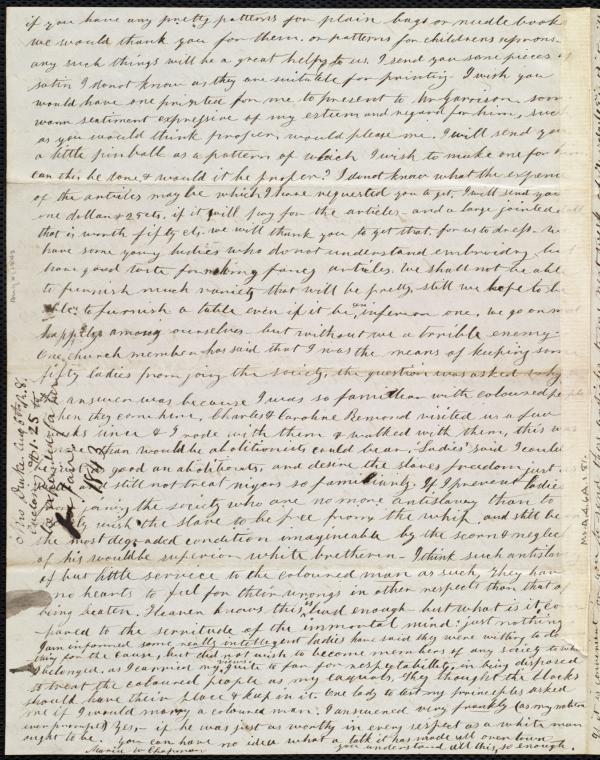 if you have any pretty patterns for plain bags or needle books
we would thank you for them. or patterns for childrens aprons.
any such things will be a great help to us. I send you some pieces of
satin I donot know as they are suitable for printing. I wish you
would have one printed for me to present to Mr Garrison, some
warm sentiment expressive of my esteem and regard for him, such
as you would think proper, would please me. I will send you
a little pinball as a pattern of which I wish to make one for him
can this be done & would it be proper? I donot know what the expense
of the articles may be which I have requested you to get. I will send you
one dollar & 25 cts. if it will pay for the articles and a large jointed doll
that is worth fifty cts. we will thank you to get that, for us to dress. We
have some young ladies who do not understand embroidry, but
have good taste for making fancy articles. We shall not be able
to furnish much variety that will be pretty, still we hope to be
able to furnish a table even if it be an inferior one, we go on most
happily among ourselves but without we a terrible enemy.
One church member has said that I was the means of keeping some
fifty ladies from joing the society, the question was asked why
answer was because I was so familiar with coloured people
when they come here, Charles & Caroline Remond visited us a few
weeks since & I rode with them & walked with them, this was
than would be abolitionists could bear, "Ladies" said I could
good an abolitionist, and desire the slaves freedom just
still not treat nigers so familiarly. If I prevent ladies
joing the society who are no more antislavery than to
wish the slave to be free from the whip, and still be in
the most degraded condition imagineable by the scorn & neglect
of his would be superior white bretheren - I think such antislavery
of but little service to the coloured man as such, They have
no hearts to feel for their wrongs in other respects than that of
being beaten. Heaven knows this is bad enough - but what is it com
pared to the servitude of the immortal mind: just nothing
I am informed some really intelligent ladies have said they were willing to do
thing for the cause, but did not wish to become members of any society to which
I belonged as I carried my views quite to far for respectability, in being disposed
to treat the coloured people as my eaquals, they thought the blacks
should have their place & keep in it. One lady to test my principles asked
me if I would marry a coloured man. I answered very frankly (as my nature
ever prompts) Yes,- if he was just as worthy in every respect as a white man
ought to be. you can have no idea what a talk it has made all over town
Maria W Chapman you understand all this, so enough.
1843
Ms.A.9.2